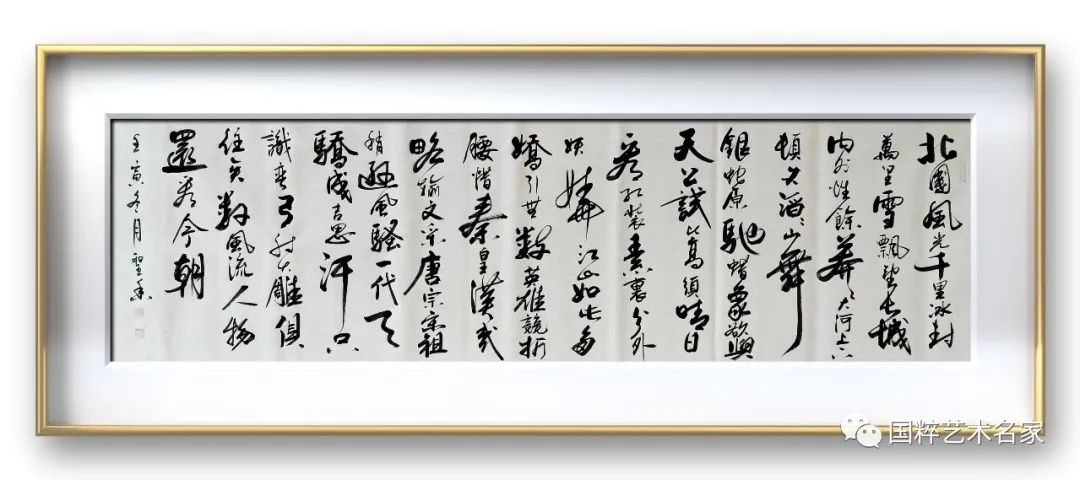 北國風光千里冰封
萬里雪飄望長城
内外惟餘莽莽大河上下
頓失滔滔山舞
銀蛇原馳蠟象欲與
天公試比高須晴日
看紅裝素裹分外
妖嬈江山如此多
嬌引無數英雄競折
腰惜秦皇漢武
略輸文采唐宗宋祖
稍遜風騷一代天
驕成吉思汗只
識彎弓射大雕俱
往矣數風流人物
還看今朝
壬寅冬月
国粹艺术名家